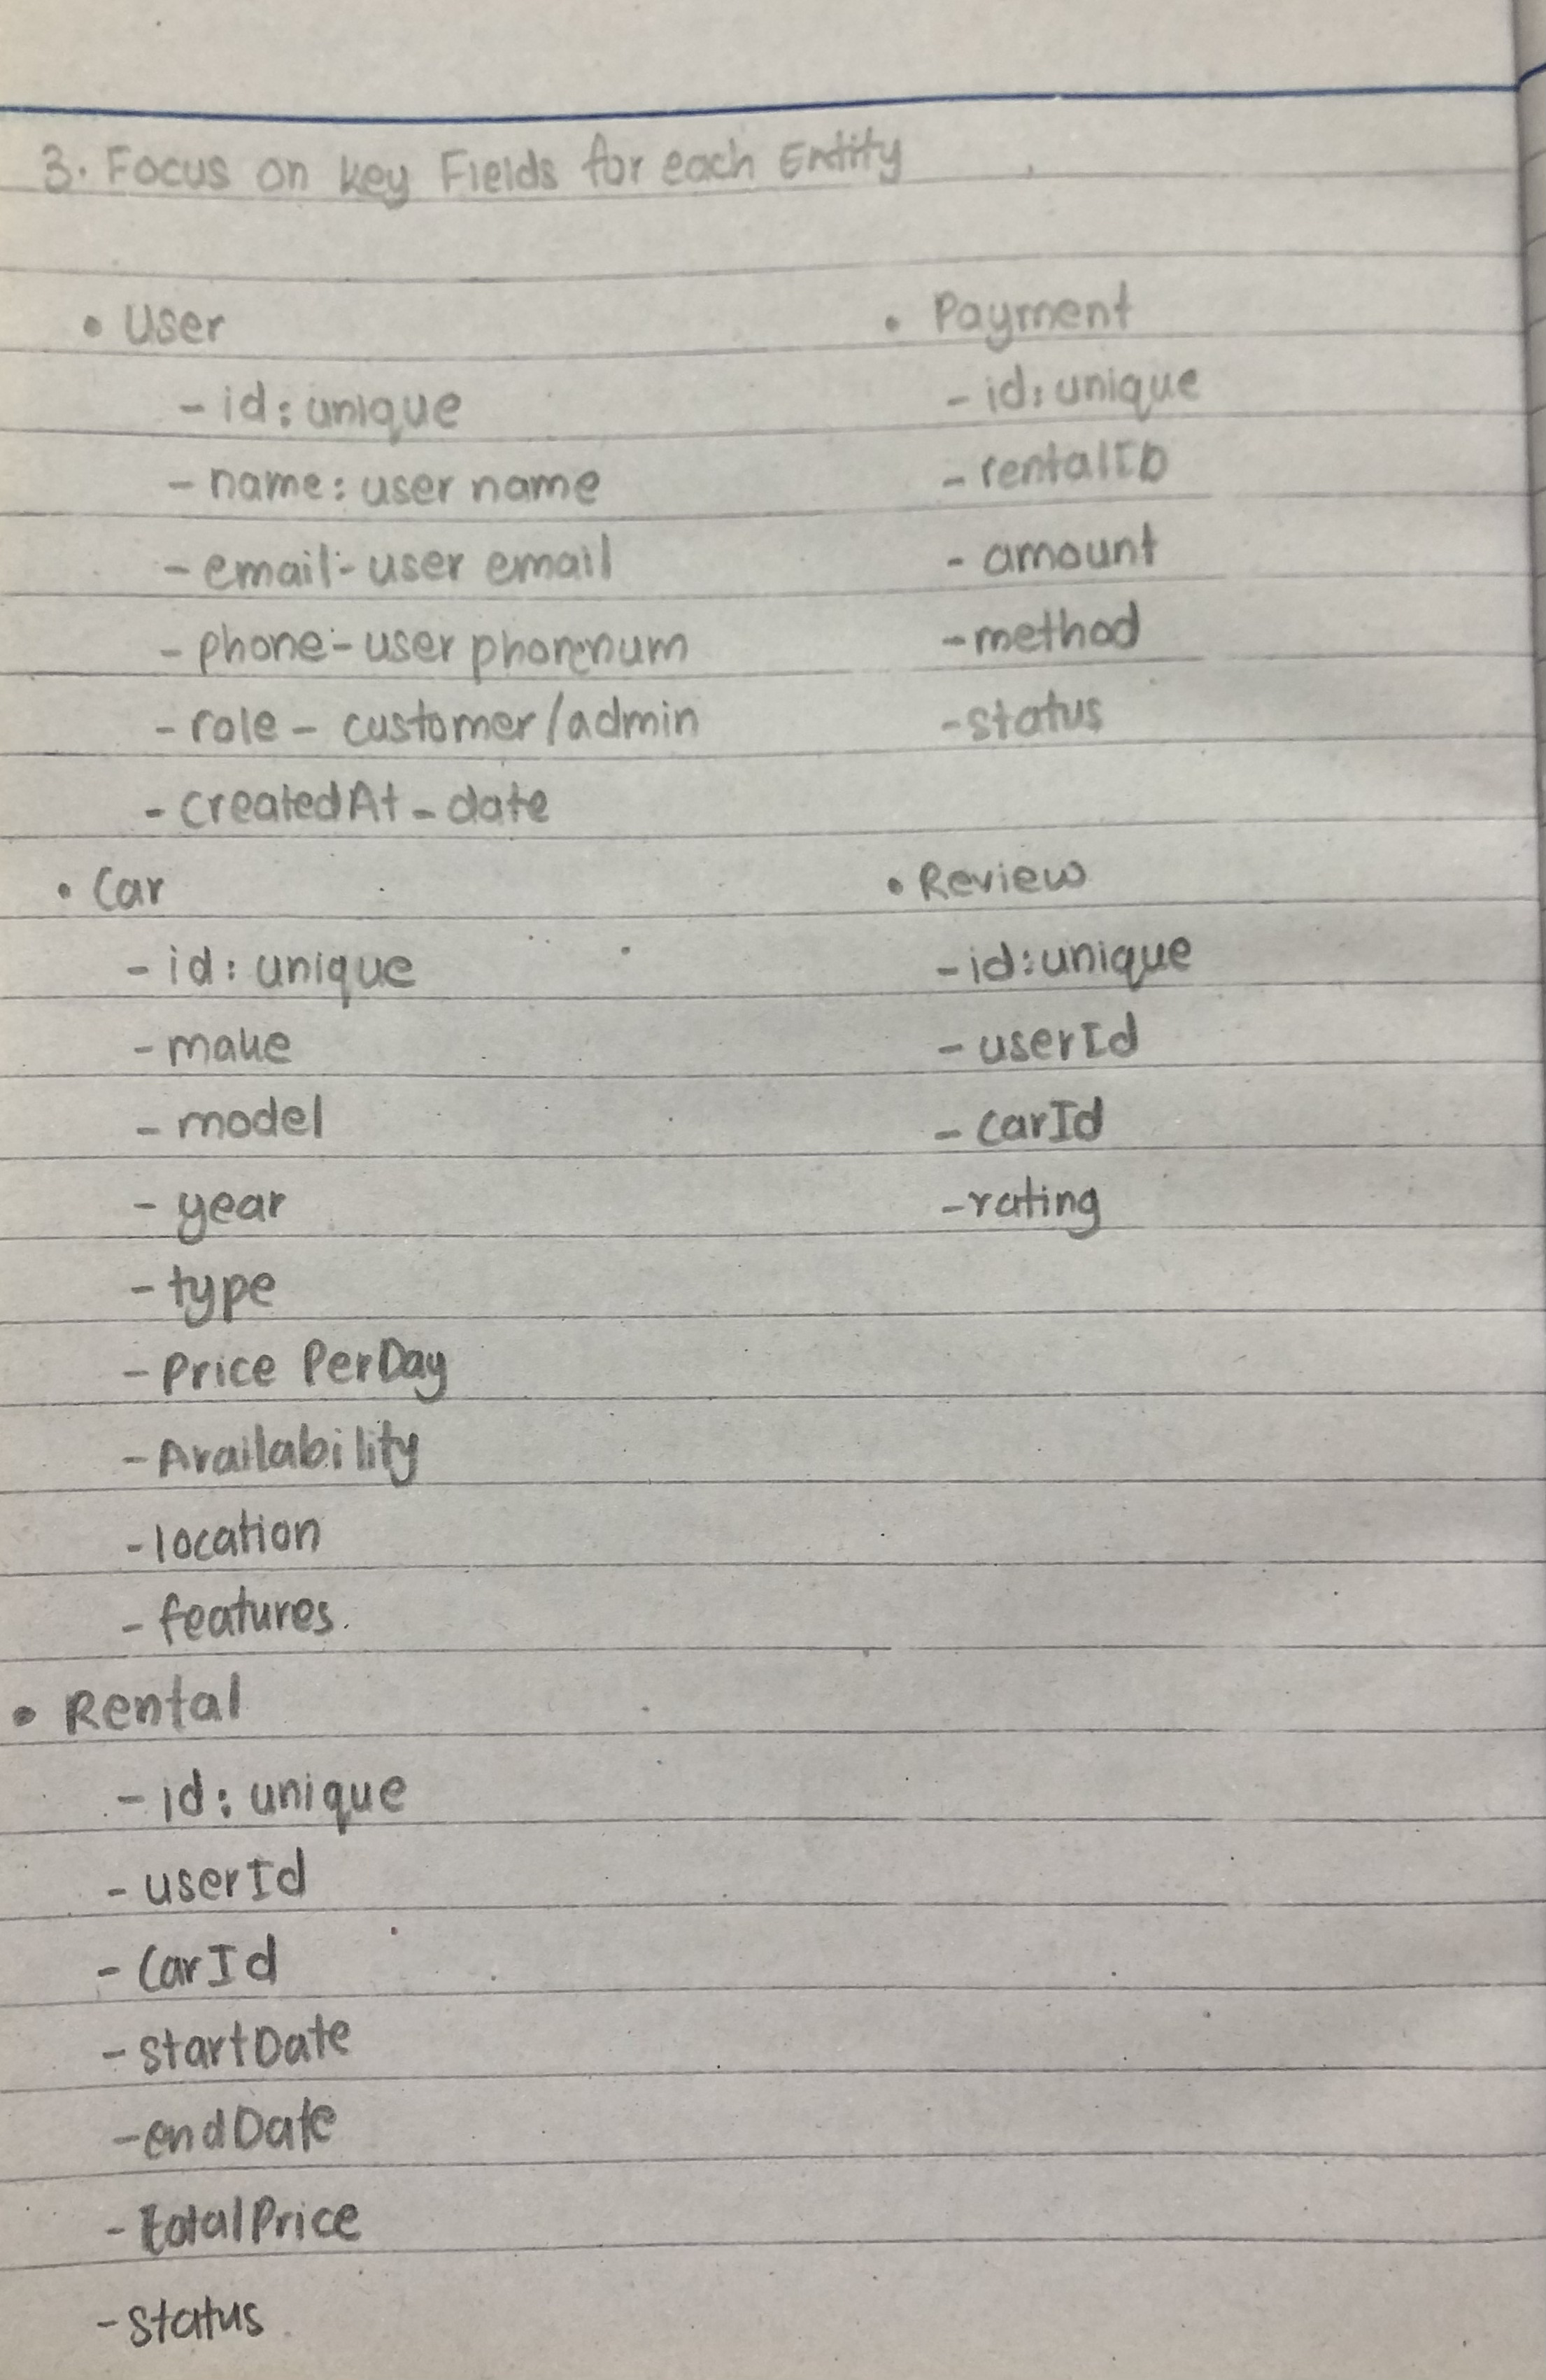 3. Focus on key Fields for each Entity
• User
- id: unique
- name: user name
- email:- user email
- phone:- user phonenum
- role - customer/admin
- createdAt - date
• Car
- id: unique
- make
- model
- year
- type
- Price PerDay
- Availability
- location
- features.
• Rental
- id: unique
- userId
- CarId
- startDate
- endDate
- totalPrice
- status
• Payment
- id: unique
- rentalID
- amount
- method
- status
• Review
- id: unique
- userId
- CarId
- rating